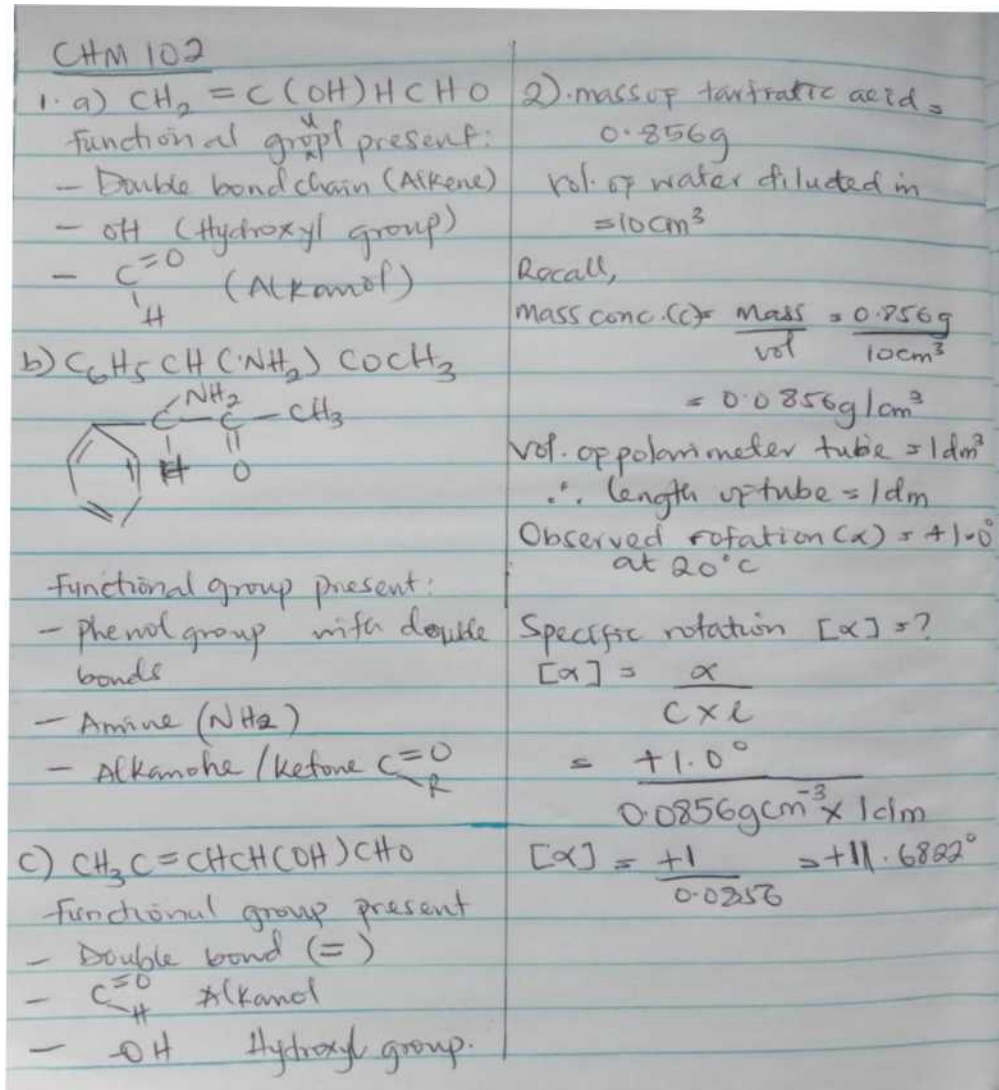 CHM 102
1. a) CH₂ = C(OH)HCHO
functional group present:
- Double bond chain (Alkene)
- OH (Hydroxyl group)
- C=O (Alkanol)
H
b) C₆H₅CH(NH₂)COCH₃
NH₂
C - C - CH₃
H O
functional group present:
- phenol group with double
bonds
- Amine (NH₂)
- Alkanone / ketone C=O
R
c) CH₃C=CHCH(OH)CHO
functional group present
- Double bond (=)
- C=O Alkanol
H
- -OH Hydroxyl group.
2). mass of tartratic acid =
0.856g
vol. of water diluted in
=10cm³
Recall,
mass conc.(c)= Mass = 0.856g
vol 10cm³
= 0.0856g/cm³
Vol. of polarimeter tube = 1dm³
∴ length of tube = 1dm
Observed rotation (α) = +1.0°
at 20°c
Specific rotation [α] =?
[α] = α
C x l
= +1.0°
0.0856gcm⁻³ x 1dm
[α] = +1 = +11.6822°
0.0856